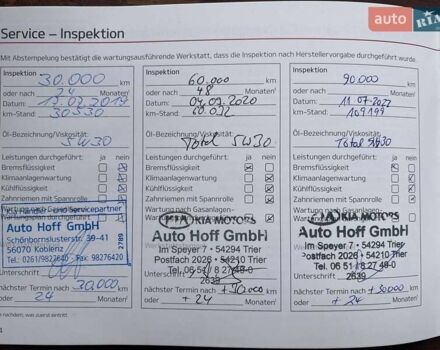 auto RIA
Service – Inspektion
Mit Abstempelung bestätigt die wartungsausführende Werkstatt, dass die Inspektion nach Herstellervorgabe durchgeführt wurde.
Inspektion
30.000 km
oder nach 24 Monaten
Datum: 2019
km-Stand: 30530
Öl-Bezeichnung/Viskosität:
5W30
Leistungen durchgeführt: ja nein
Bremsflüssigkeit
Klimaanlagenwartung
Kühlflüssigkeit
Zahnriemen mit Spannrolle
Auto Hoff GmbH
Schönbornsluster Str. 39-41
56070 Koblenz
Tel.: 0261/9822640 Fax: 98276420
2789
Unterschrift
nächster Termin nach 30.000 km
oder 24 Monaten
Inspektion
60.000 km
oder nach 48 Monaten
Datum: 2020
km-Stand: 60.032
Öl-Bezeichnung/Viskosität:
Total 5W30
Leistungen durchgeführt: ja nein
Bremsflüssigkeit
Klimaanlagenwartung
Kühlflüssigkeit
Zahnriemen mit Spannrolle
Wartung nach Gasanlagen-
KIA MOTORS
Auto Hoff GmbH
Im Speyer 7 · 54294 Trier
Postfach 2026 · 54210 Trier
Tel. 06 51 / 8 27 48-0
2639
Unterschrift
nächster Termin nach +30.000 km
oder +24 Monaten
Inspektion
90.000 km
oder nach Monaten
Datum: 11.07.2022
km-Stand: 109199
Öl-Bezeichnung/Viskosität:
Total 5W30
Leistungen durchgeführt: ja nein
Bremsflüssigkeit
Klimaanlagenwartung
Kühlflüssigkeit
Zahnriemen mit Spannrolle
Wartung nach Gasanlagen-
KIA MOTORS
Auto Hoff GmbH
Im Speyer 7 · 54294 Trier
Postfach 2026 · 54210 Trier
Tel. 06 51 / 8 27 48-0
2639
Unterschrift
nächster Termin nach +30000 km
oder +24 Monaten
nachdem, was zuerst eintritt.